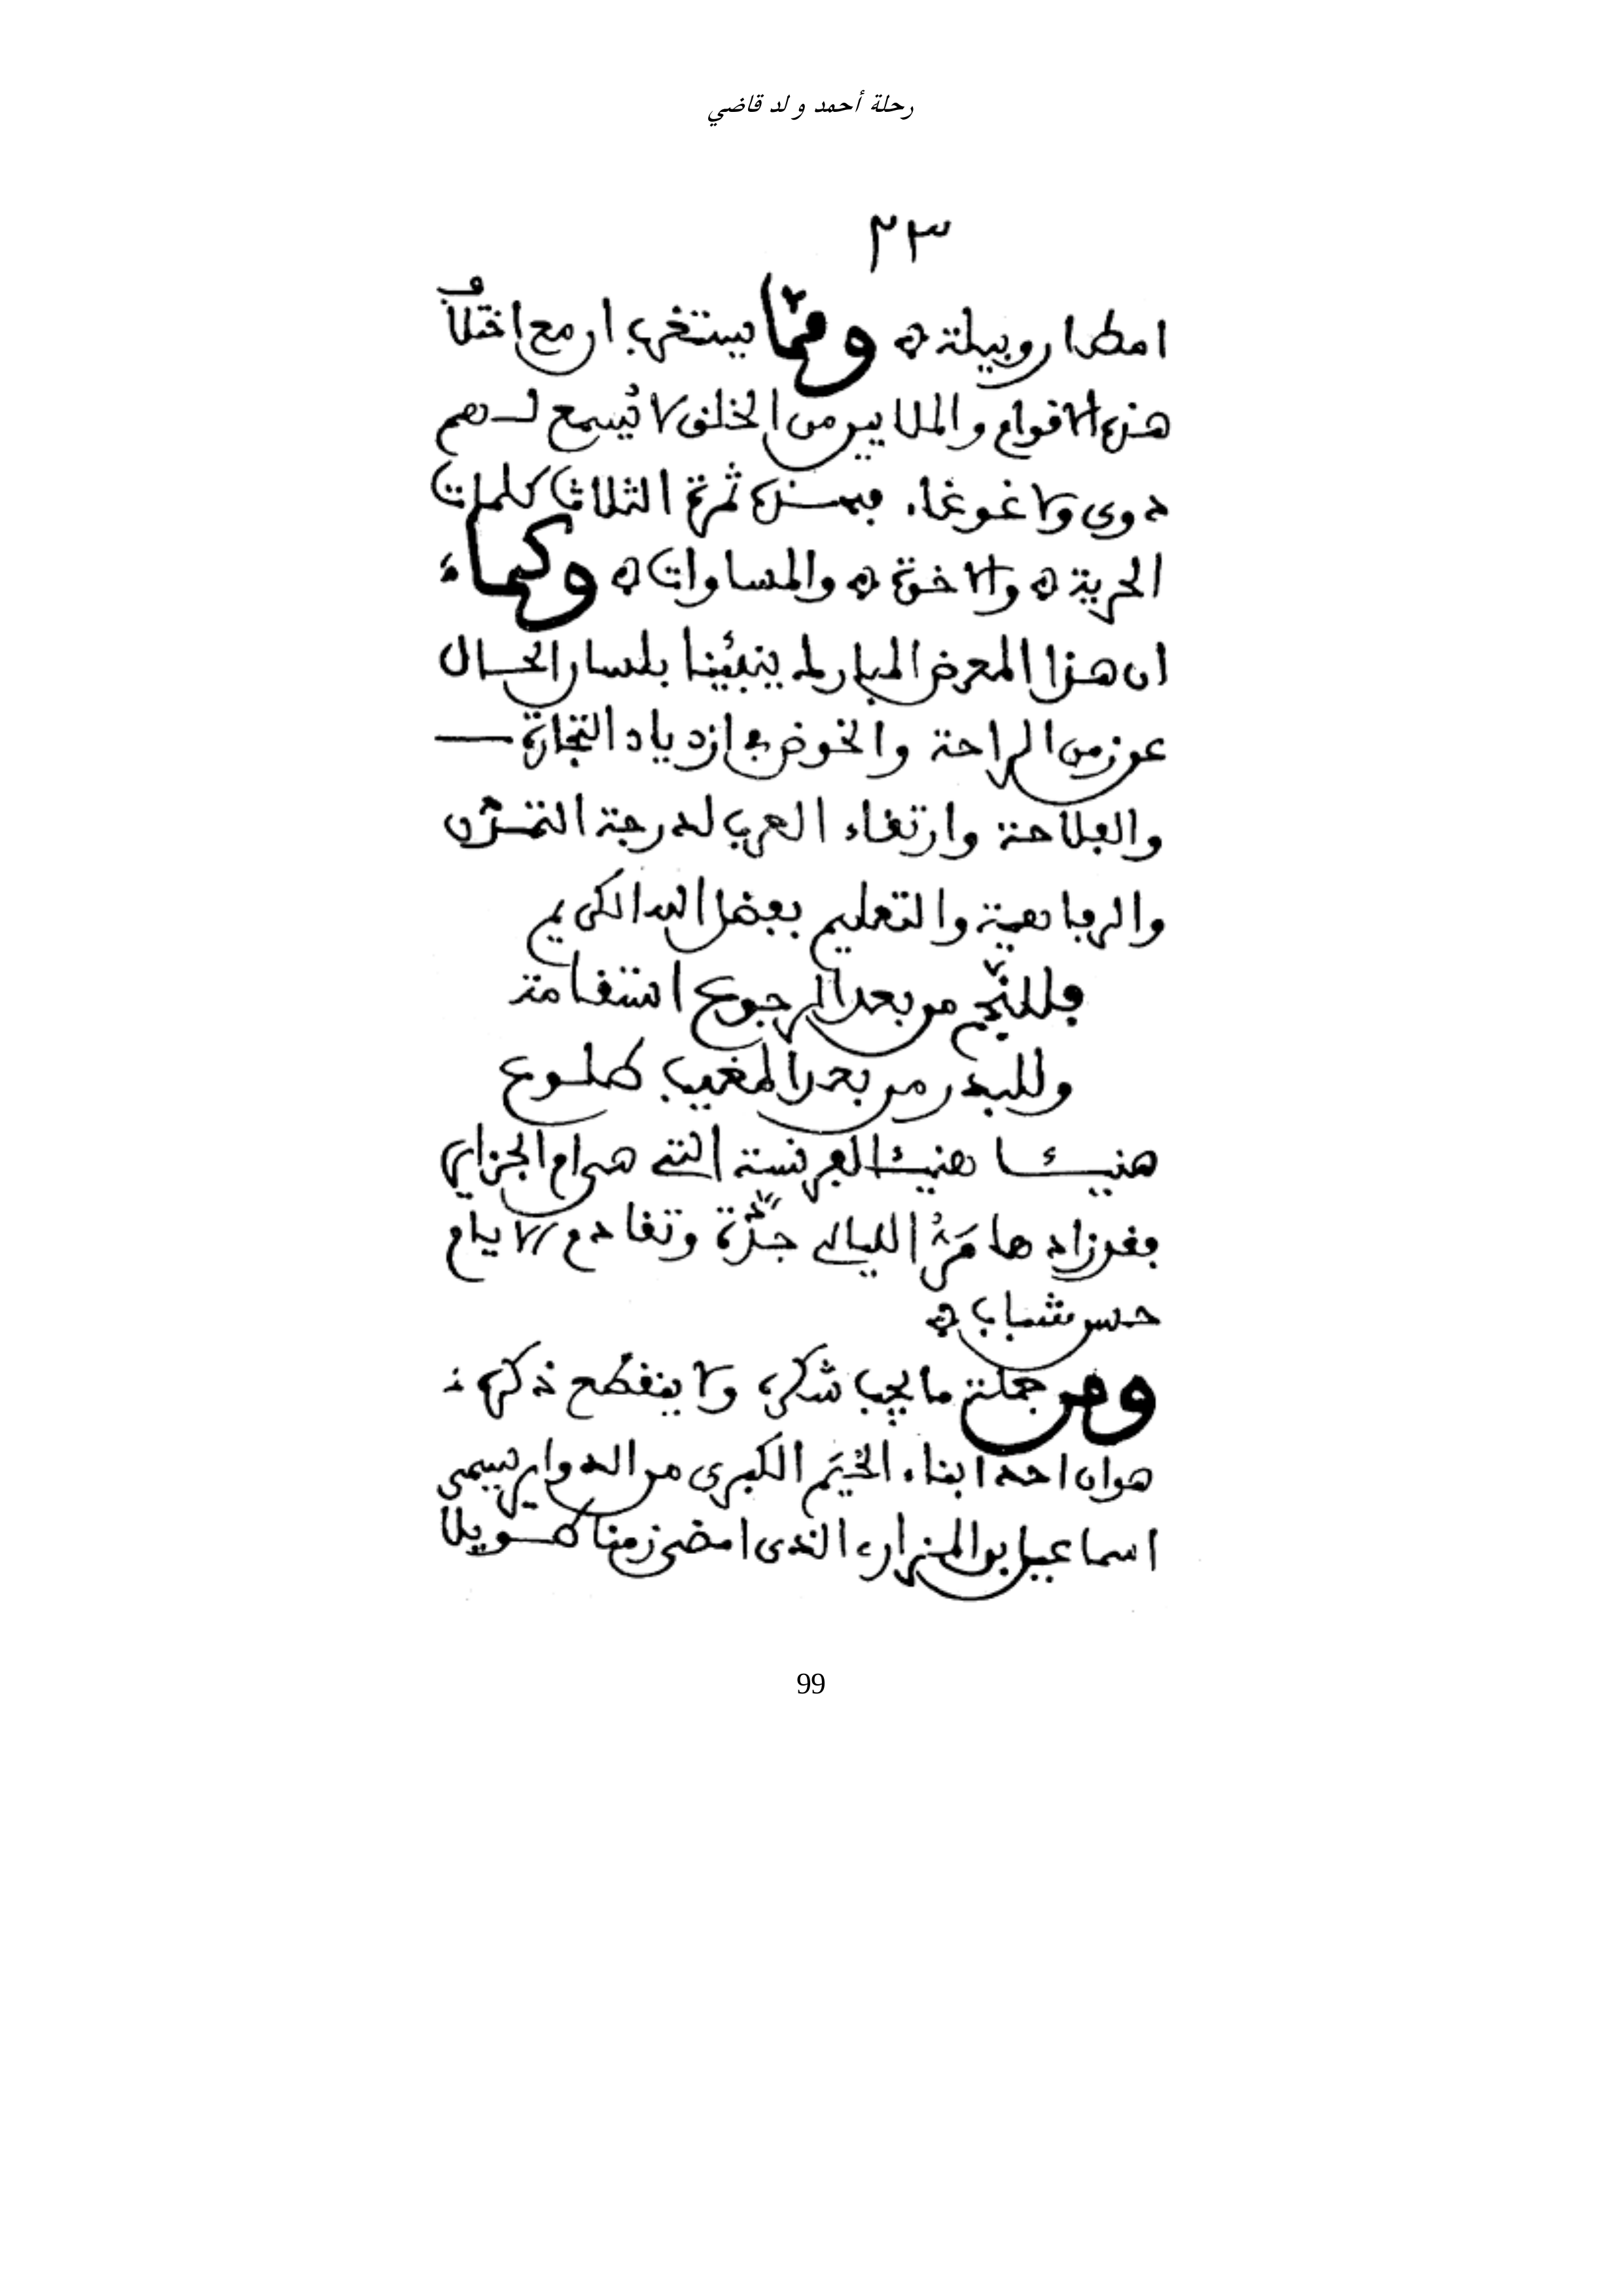 رحلة أحمد ولد قاضي
٢٣
امطار وبيلة ه ومما يستغرب ان مع اختلاف
هذه الاقوام والملايين من الخلق لا تُسمع لهم
دوى ولا غوغاء فهذه ثمرة الثلاث كلمات
الحرية ه والاخوة ه والمساوات ه وكما
ان هذا المعرض المبارك ينبئينا بلسان الحال
عن زمن الراحة والخوض في ازدياد التجارة
والفلاحة وارتقاء العرب لدرجة التمدّن
والرفاهية والتعليم بفضل الله الكريم
فللنّجم من بعد الرجوع استقامة
وللبدر من بعد المغيب طلوع
هنيئا هنيئا لفرنسة التى هى ام الجزاير
فقد زادها مَرُّ الليالى جدّة وتقادم الايام
حسن شباب ه
ومن جملة ما يجب شكره ولا ينقطع ذكره
هو ان احد ابناء الخيَم الكبرى من الدواير يسمى
اسماعيل بو المزارى الذى امضى زمنا طويلا
99